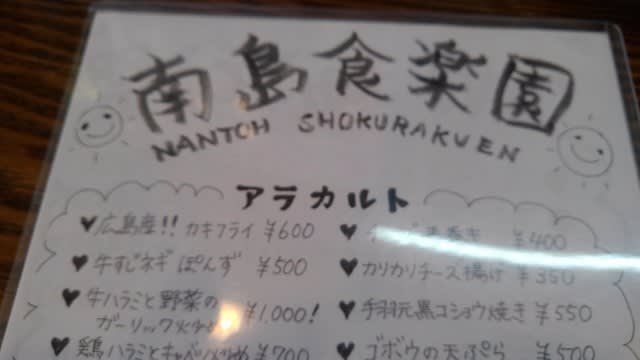 南島食楽園
NANTOH SHOKURAKUEN
アラカルト
♥広島産!! カキフライ ¥600
♥牛すじネギぽんず ¥500
♥牛ハラミと野菜の
ガーリック炒め ¥1,000!
♥鶏ハラミとキャベツ炒め ¥700
♥ ¥400
♥カリカリチーズ揚げ ¥350
♥手羽元黒コショウ焼き ¥550
♥ゴボウの天ぷら ¥500